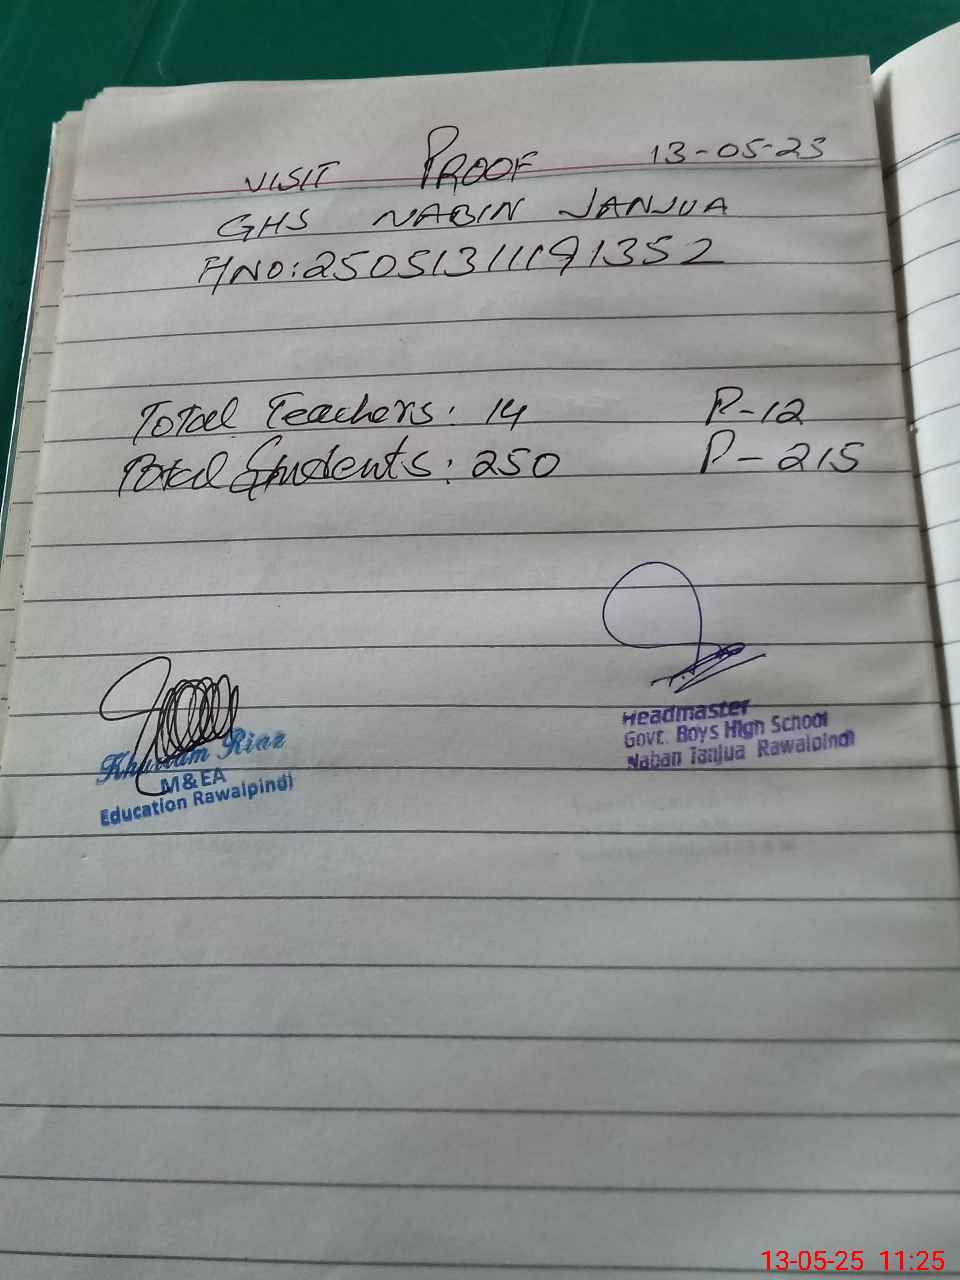 VISIT PROOF 13-05-25
GHS NABIN JANJUA
HNO: 25051311191352
Total Teachers: 14 P-12
Total Students: 250 P-215
Headmaster
Govt. Boys High School
Naban Janjua Rawalpindi
Khurram Riaz
M&EA
Education Rawalpindi
13-05-25 11:25